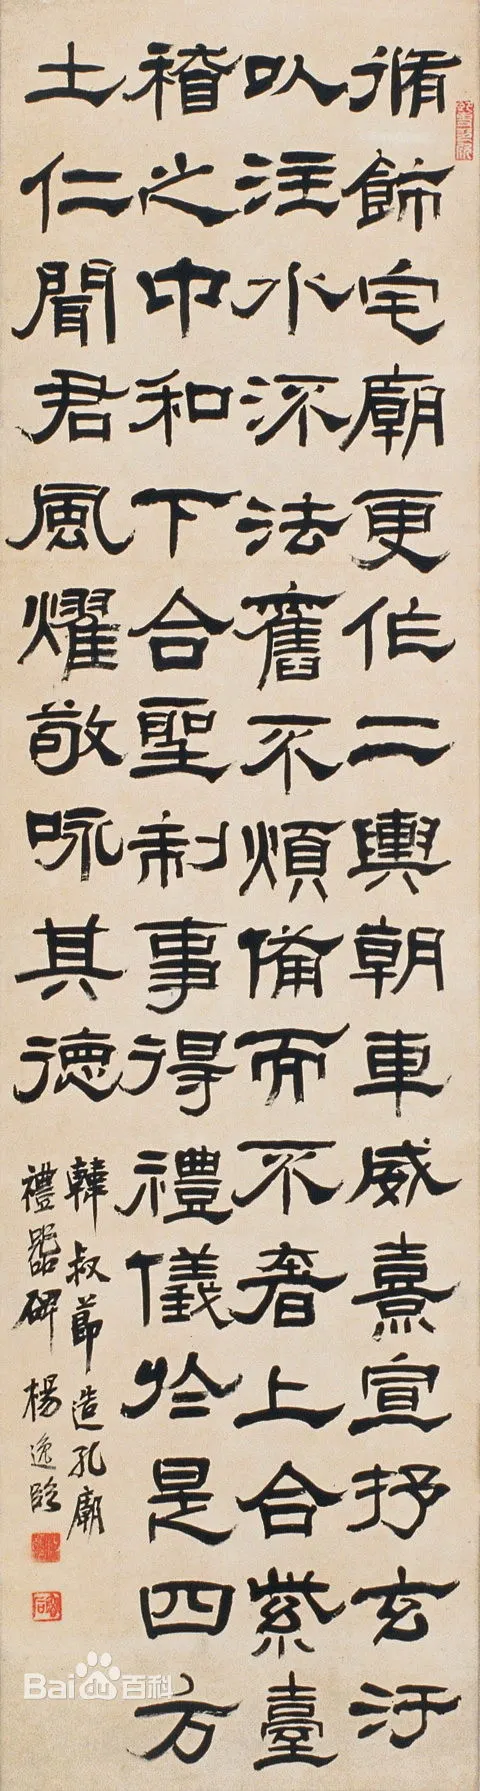 脩飾宅廟更作二輿朝車威熹宣抒玄汙
以注水流法舊不煩備而不奢上合紫臺
稽之中和下合聖制事得禮儀於是四方
土仁聞君風燿敬咏其德
韓叔節造孔廟
禮器碑 楊逸臨
Bai百科